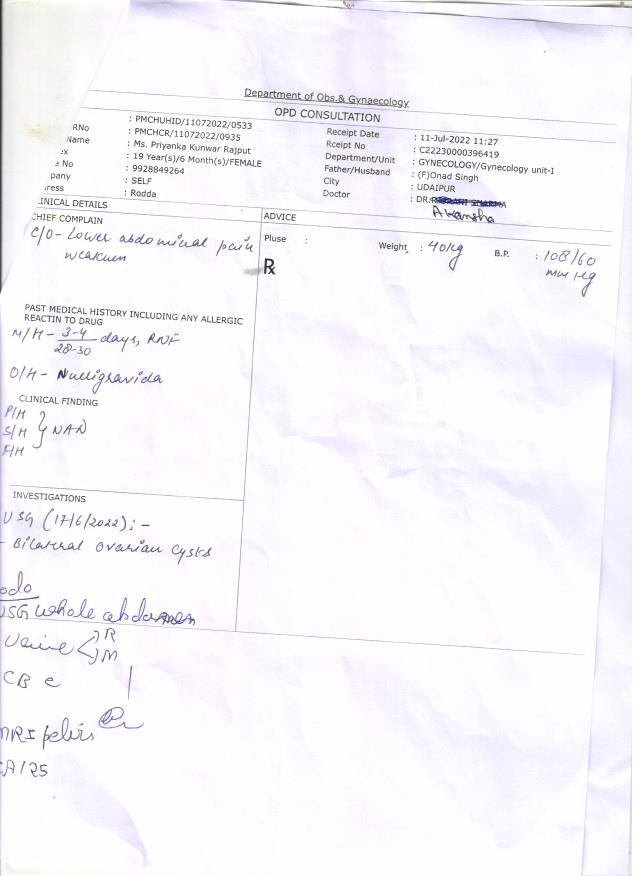 Department of Obs.& Gynaecology
OPD CONSULTATION
RNo : PMCHUHID/11072022/0533
Name : PMCHCR/11072022/0935
ex : Ms. Priyanka Kunwar Rajput
e No : 19 Year(s)/6 Month(s)/FEMALE
pany : 9928849264
ress : SELF
: Rodda
Receipt Date : 11-Jul-2022 11:27
Rceipt No : C22230000396419
Department/Unit : GYNECOLOGY/Gynecology unit-I
Father/Husband : (F)Onad Singh
City : UDAIPUR
Doctor : DR.
Akansha
LINICAL DETAILS
CHIEF COMPLAIN
C/O- Lower abdominal pain
weakness
ADVICE
Pluse :
Weight : 40kg
B.P. : 108/60
mm Hg
Rx
PAST MEDICAL HISTORY INCLUDING ANY ALLERGIC
REACTIN TO DRUG
M/H- 3-4 days, RNF
28-30
O/H- Nulligravida
CLINICAL FINDING
P/H
S/H } NAD
F/H
INVESTIGATIONS
USG (17/6/2022):-
- Bilateral ovarian cysts
odo
USG whole abdomen
Urine < R
M
CBC
MRI pelvis
CA125